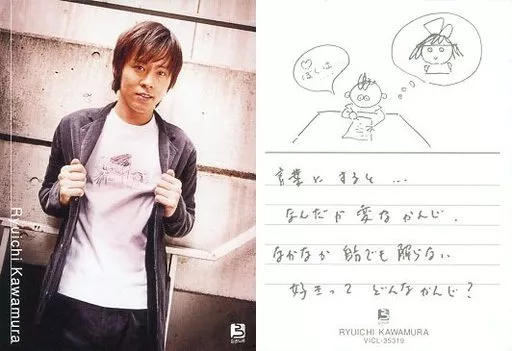 Ryuichi Kawamura
ぼくは…
言葉にすると…
なんだか変なかんじ。
なかなか 前でも解らない
好きって どんなかんじ?
RYUICHI KAWAMURA
VICL-35319